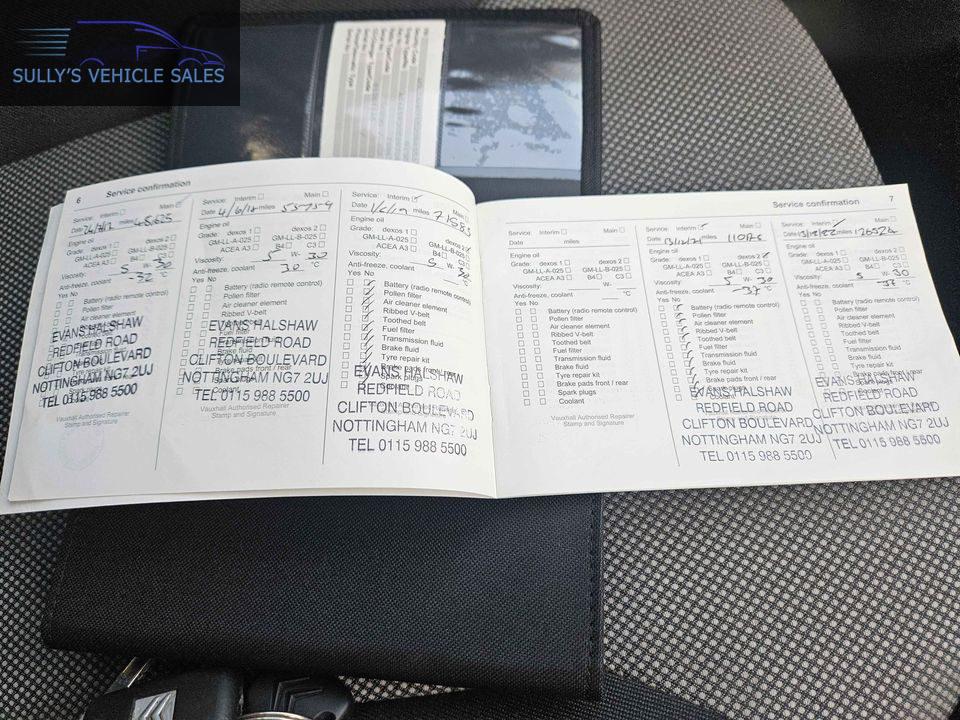 SULLY'S VEHICLE SALES
6 Service confirmation
Service: Interim Main
Date miles 45,625
Engine oil
Grade: dexos 1 dexos 2
GM-LL-A-025 GM-LL-B-025
ACEA A3 B4 C3
Viscosity: 5 W- 30
Anti-freeze, coolant °C
Yes No
Battery (radio remote control)
Pollen filter
Air cleaner element
EVANS HALSHAW
REDFIELD ROAD
CLIFTON BOULEVARD
NOTTINGHAM NG7 2UJ
TEL 0115 988 5500
Vauxhall Authorised Repairer
Stamp and Signature
Service: Interim Main
Date 4/6/18 miles
Engine oil
Grade: dexos 1 dexos 2
GM-LL-A-025 GM-LL-B-025
ACEA A3 B4 C3
Viscosity: 5 W- 30
Anti-freeze, coolant 30 °C
Yes No
Battery (radio remote control)
Pollen filter
Air cleaner element
Ribbed V-belt
EVANS HALSHAW
Fuel filter
REDFIELD ROAD
Brake fluid
CLIFTON BOULEVARD
NOTTINGHAM NG7 2UJ
TEL 0115 988 5500
Coolant
Vauxhall Authorised Repairer
Stamp and Signature
Service: Interim Main
Date miles
Engine oil
Grade: dexos 1 dexos 2
GM-LL-A-025 GM-LL-B-025
ACEA A3 B4
Viscosity: 5 W- 30
Anti-freeze, coolant °C
Yes No
Battery (radio remote control)
Pollen filter
Air cleaner element
Ribbed V-belt
Toothed belt
Fuel filter
Transmission fluid
Brake fluid
Tyre repair kit
EVANS HALSHAW
REDFIELD ROAD
CLIFTON BOULEVARD
NOTTINGHAM NG7 2UJ
TEL 0115 988 5500
Service confirmation 7
Service: Interim Main
Date miles
Engine oil
Grade: dexos 1 dexos 2
GM-LL-A-025 GM-LL-B-025
ACEA A3 B4 C3
Viscosity: W-
Anti-freeze, coolant °C
Yes No
Battery (radio remote control)
Pollen filter
Air cleaner element
Ribbed V-belt
Toothed belt
Fuel filter
Transmission fluid
Brake fluid
Tyre repair kit
Brake pads front / rear
Spark plugs
Coolant
Vauxhall Authorised Repairer
Stamp and Signature
Service: Interim Main
Date 13/12/21 miles
Engine oil
Grade: dexos 1 dexos 2
GM-LL-A-025 GM-LL-B-025
ACEA A3 B4 C3
Viscosity: 5 W- 30
Anti-freeze, coolant -37 °C
Yes No
Battery (radio remote control)
Pollen filter
Air cleaner element
Ribbed V-belt
Toothed belt
Fuel filter
Transmission fluid
Brake fluid
Tyre repair kit
Brake pads front / rear
EVANS HALSHAW
REDFIELD ROAD
CLIFTON BOULEVARD
NOTTINGHAM NG7 2UJ
TEL 0115 988 5500
Service: Interim Main
Date miles
Engine oil
Grade: dexos 1 dexos 2
GM-LL-A-025 GM-LL-B-025
ACEA A3 B4 C3
Viscosity: 5 W- 30
Anti-freeze, coolant °C
Yes No
Battery (radio remote control)
Pollen filter
Air cleaner element
Ribbed V-belt
Toothed belt
Fuel filter
Transmission fluid
Brake fluid
Tyre repair kit
EVANS HALSHAW
REDFIELD ROAD
CLIFTON BOULEVARD
NOTTINGHAM NG7 2UJ
TEL 0115 988 5500